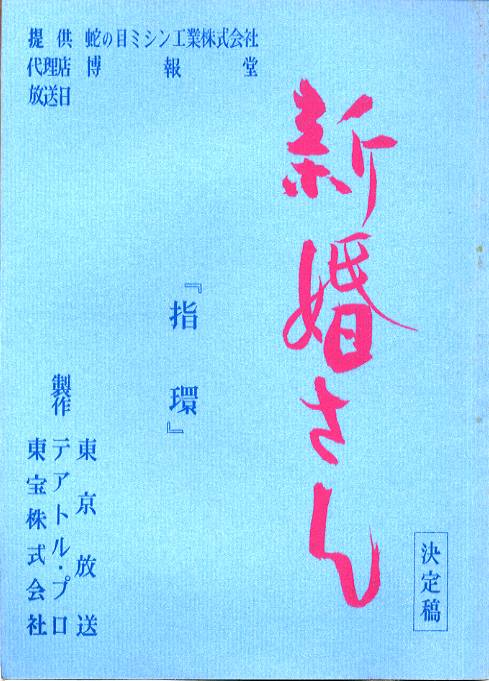 提供 蛇の目ミシン工業株式会社
代理店 博報堂
放送日
新婚さん
決定稿
『指環』
製作
東京放送
テアトル・プロ
東宝株式会社